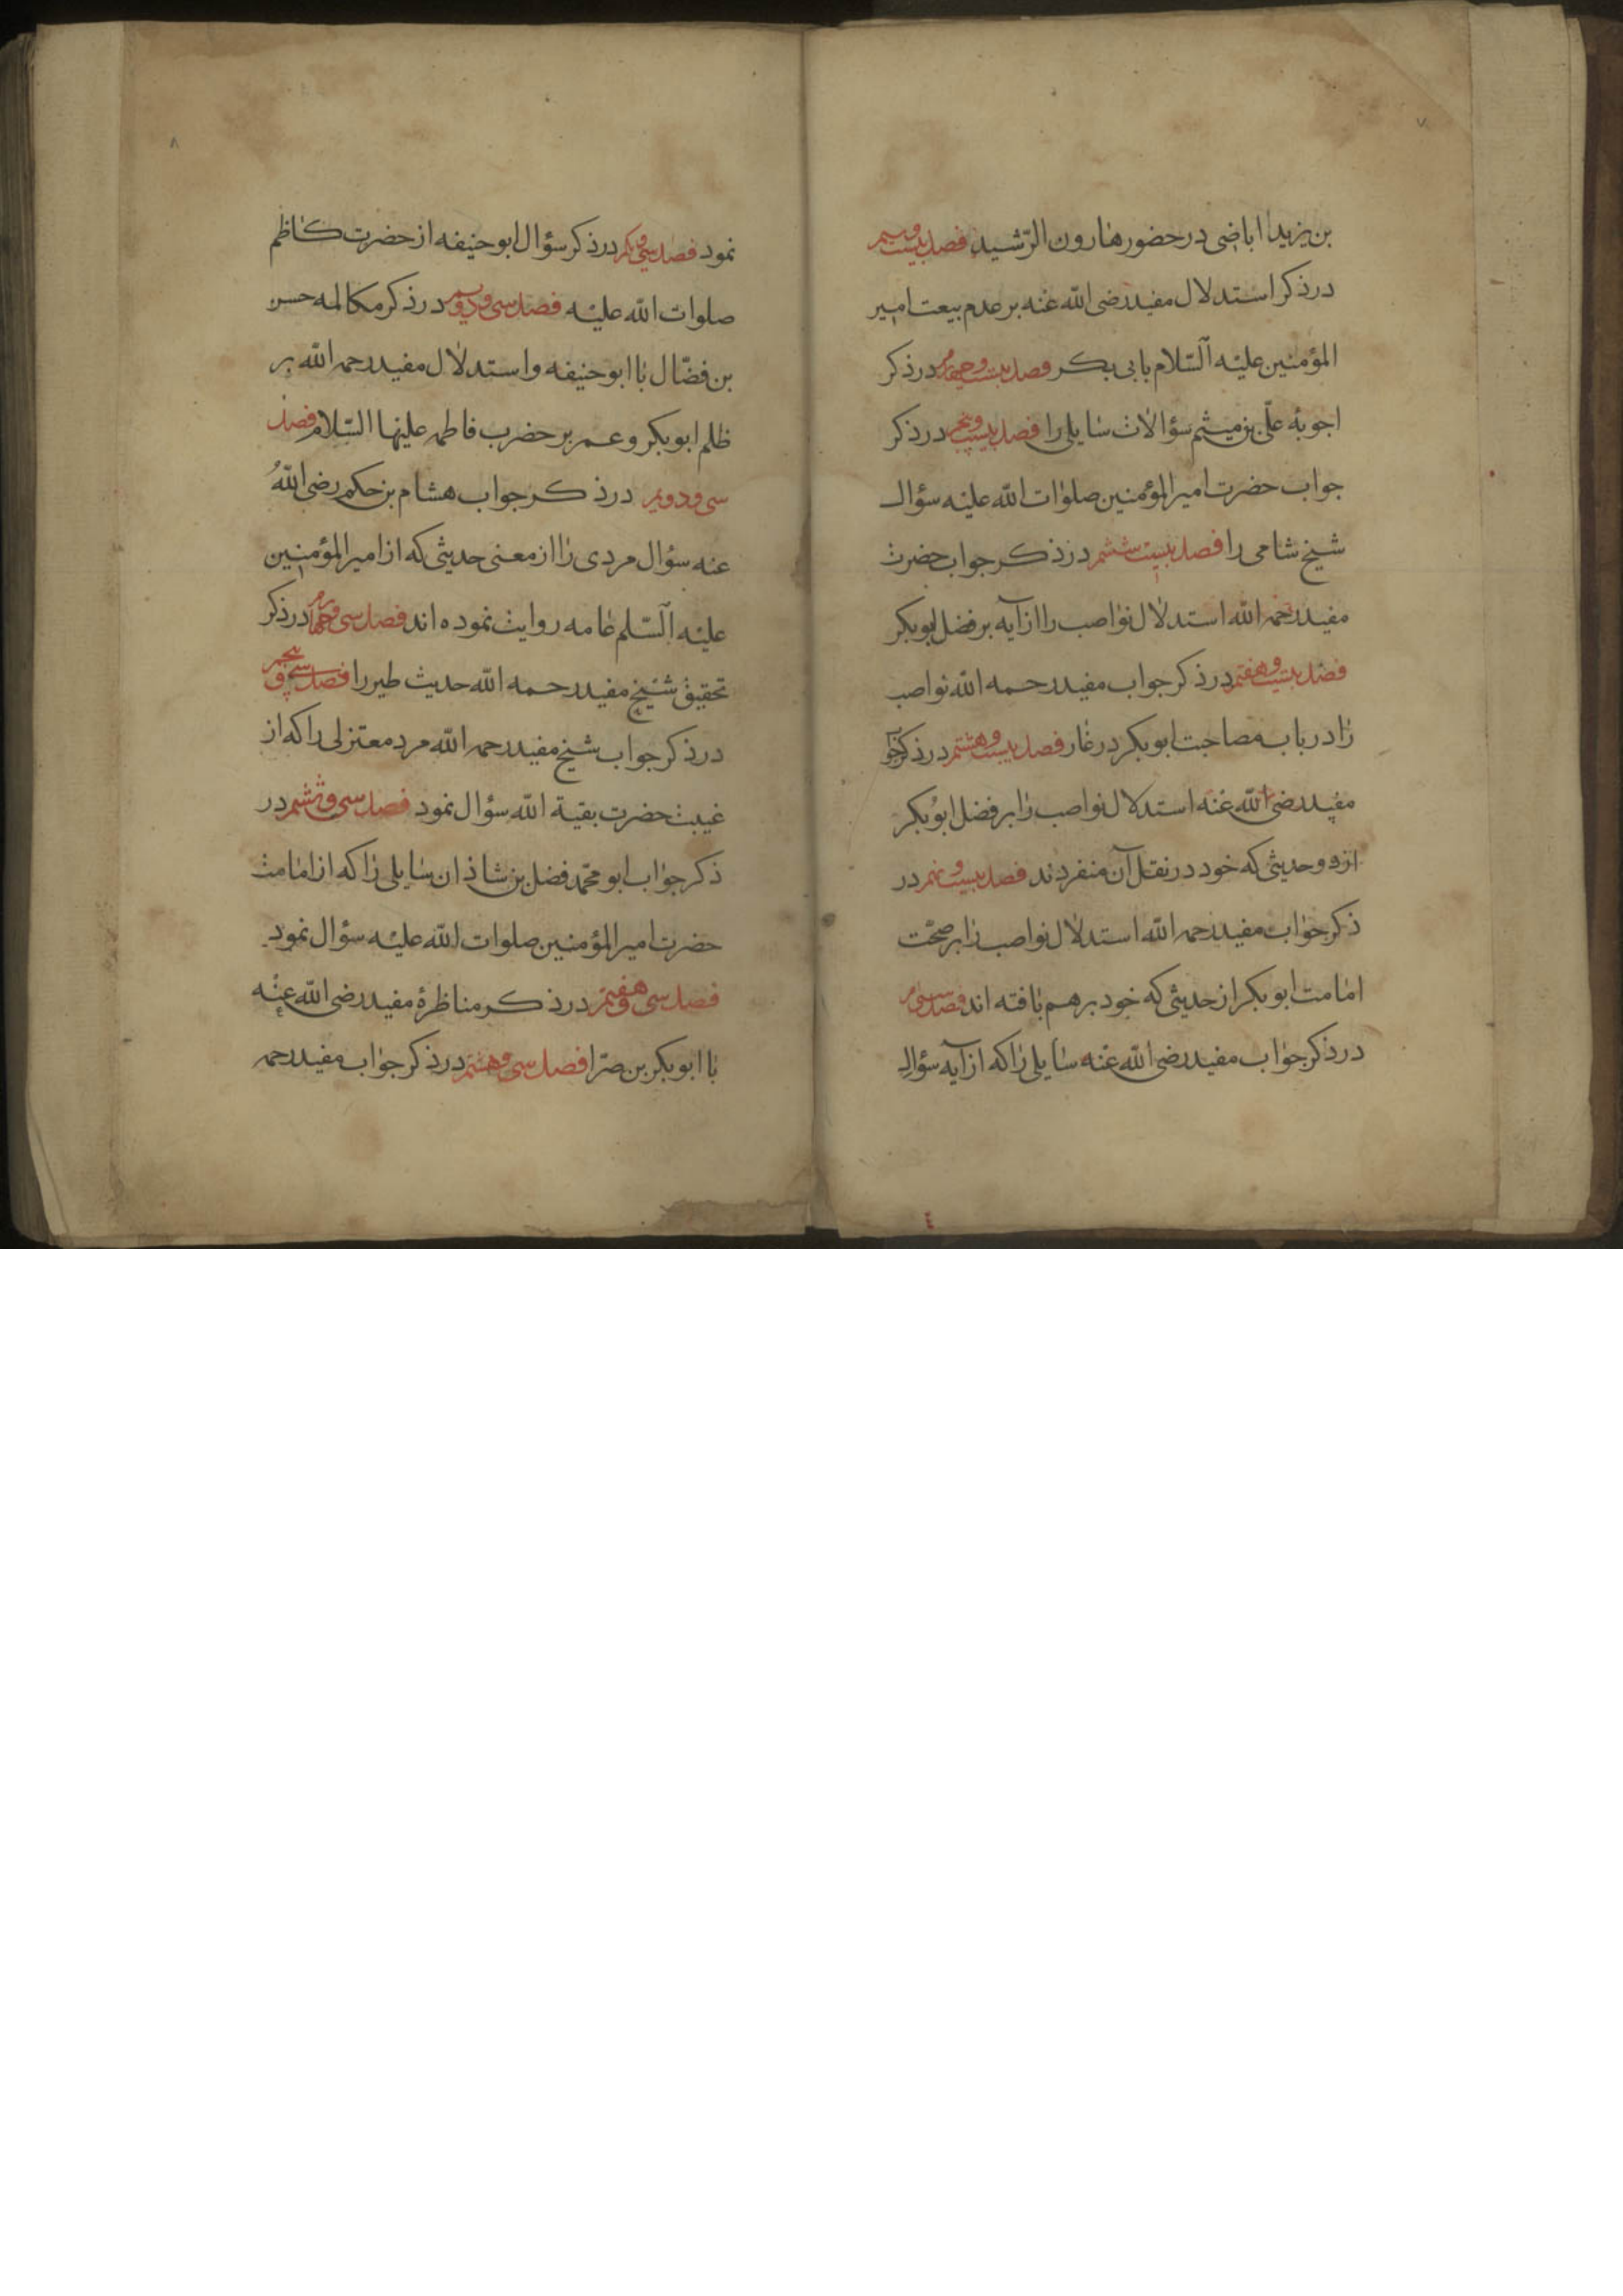 ۷
بن یزید اباضی در حضور هارون الرّشید فصل بیست و سیم
در ذکر استدلال مفید رضی اللّه عنه بر عدم بیعت امیر
المؤمنین علیه السّلام بابی بکر فصل بیست و چهارم در ذکر
اجوبهٔ علّی بن میثم سؤالات سایلی را فصل بیست و پنجم در ذکر
جواب حضرت امیر المؤمنین صلوات اللّه علیه سؤال
شیخ شامی را فصل بیست ششم در ذکر جواب حضرت
مفید رحمه اللّه استدلال نواصب را از آیه بر فضل ابوبکر
فصل بیست و هفتم در ذکر جواب مفید رحمه اللّه نواصب
را در باب مصاحبت ابوبکر در غار فصل بیست و هشتم در ذکر جواب
مفید رضی اللّه عنه استدلال نواصب را بر فضل ابوبکر
از دو حدیثی که خود در نقل آن منفردند فصل بیست و نهم در
ذکر جواب مفید رحمه اللّه استدلال نواصب را بر صحّت
امامت ابوبکر از حدیثی که خود بر هم بافته اند فصل سی م
در ذکر جواب مفید رضی اللّه عنه سایلی را که از آیه سؤال
۸
نمود فصل سی و یکم در ذکر سؤال ابوحنیفه از حضرت کاظم
صلوات اللّه علیه فصل سی و دویم در ذکر مکالمه حسن
بن فضّال با ابوحنیفه و استدلال مفید رحمه اللّه بر
ظلم ابوبکر و عمر بر حضرب فاطمه علیها السّلام فصل
سی و دویم در ذکر جواب هشام بن حکم رضی اللّهُ
عنه سؤال مردی را از معنی حدیثی که از امیر المؤمنین
علیه السّلم عامه روایت نموده اند فصل سی و چهارم در ذکر
تحقیق شیخ مفید رحمه اللّه حدیث طیر را فصل سی و پنجم
در ذکر جواب شیخ مفید رحمه اللّه مرد معتزلی را که از
غیبت حضرت بقیة اللّه سؤال نمود فصل سی و ششم در
ذکر جواب ابو محمّد فضل بن شاذان سایلی را که از امامت
حضرت امیر المؤمنین صلوات اللّه علیه سؤال نمود
فصل سی و هفتم در ذکر مناظرهٔ مفید رضی اللّه عنه
با ابوبکر بن صرّا فصل سی و هشتم در ذکر جواب مفید رحمه